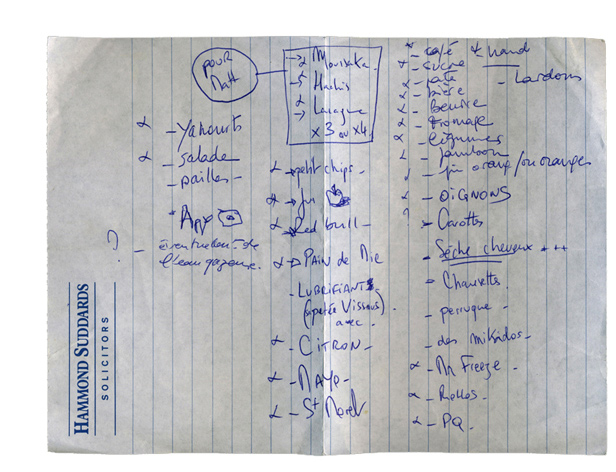 POUR
Matt
→ Moussaka
→ Hachis
→ Lasagne
x 3 ou x4
- Yahourts
- salade
- pailles -
?
- éventuellement de
l'eau gazeuse.
HAMMOND SUDDARDS
SOLICITORS
→ petit chips -
→ Jus
Red bull -
→ PAIN de Mie
- LUBRIFIANTS
avec
- CITRON -
- MAYO -
- St Moret
- café
- sucre
- pate
- Lardons
- bière
- Beurre
- fromage
- légumes
- jambon
- jus orange / ou oranges
- OIGNONS
?
- Carottes
- Sèche cheveux +++
- Chaussettes.
- perruque -
- des mikados -
- Mr Freeze -
- PQ -